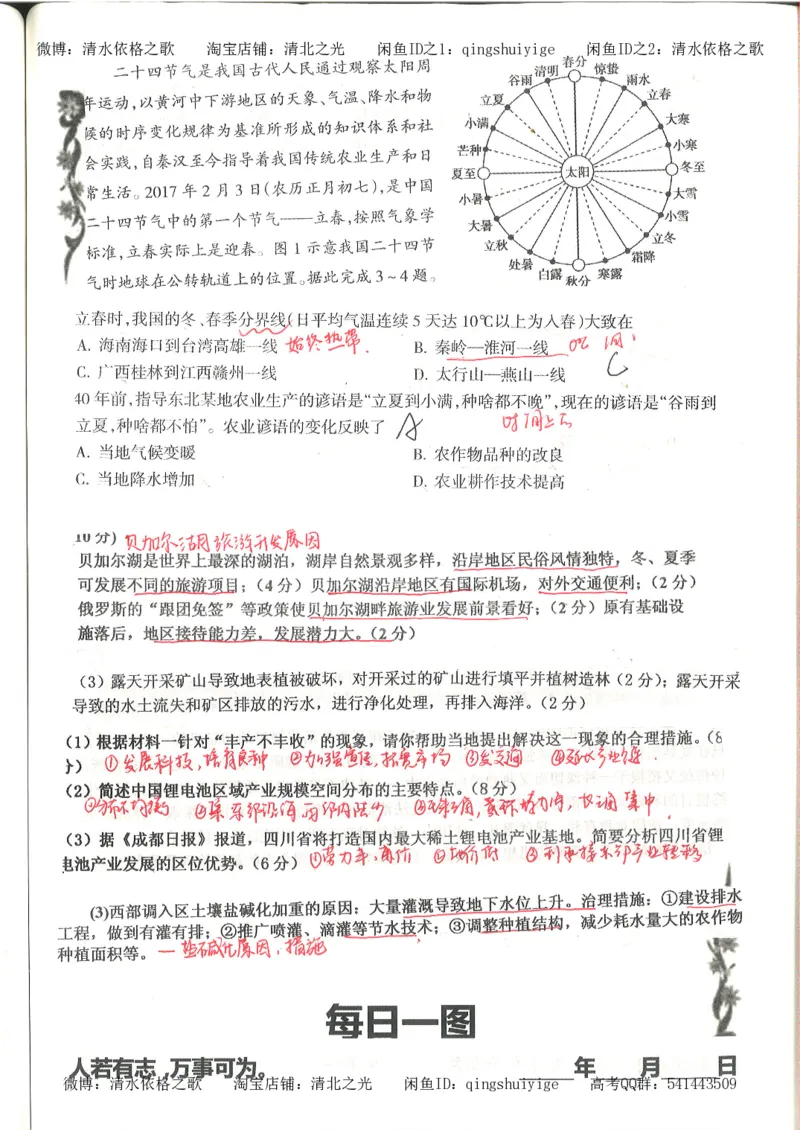 微博：清水依格之歌 淘宝店铺：清北之光 闲鱼ID之1：qingshuiyige 闲鱼ID之2：清水依格之歌
二十四节气是我国古代人民通过观察太阳周
年运动，以黄河中下游地区的天象、气温、降水和物
候的时序变化规律为基准所形成的知识体系和社
会实践，自秦汉至今指导着我国传统农业生产和日
常生活。2017年2月3日（农历正月初七），是中国
二十四节气中的第一个节气——立春，按照气象学
标准，立春实际上是迎春。图1示意我国二十四节
气时地球在公转轨道上的位置。据此完成3~4题。
春分
清明 惊蛰
谷雨 雨水
立夏 立春
小满 大寒
芒种 小寒
夏至 太阳 冬至
小暑 大雪
大暑 小雪
立秋 立冬
处暑 霜降
白露 秋分 寒露
立春时，我国的冬、春季分界线（日平均气温连续5天达10℃以上为入春）大致在
A. 海南海口到台湾高雄一线 始终热带. B. 秦岭—淮河一线 0℃ 1月
C. 广西桂林到江西赣州一线 D. 太行山—燕山一线 C
40年前，指导东北某地农业生产的谚语是“立夏到小满，种啥都不晚”，现在的谚语是“谷雨到
立夏，种啥都不怕”。农业谚语的变化反映了 A
A. 当地气候变暖 B. 农作物品种的改良
C. 当地降水增加 D. 农业耕作技术提高
10分） 贝加尔湖旅游开发原因
贝加尔湖是世界上最深的湖泊，湖岸自然景观多样，沿岸地区民俗风情独特，冬、夏季
可发展不同的旅游项目；（4分）贝加尔湖沿岸地区有国际机场，对外交通便利；（2分）
俄罗斯的“跟团免签”等政策使贝加尔湖畔旅游业发展前景看好；（2分）原有基础设
施落后，地区接待能力差，发展潜力大。（2分）
（3）露天开采矿山导致地表植被被破坏，对开采过的矿山进行填平并植树造林（2分）；露天开采
导致的水土流失和矿区排放的污水，进行净化处理，再排入海洋。（2分）
（1）根据材料一针对“丰产不丰收”的现象，请你帮助当地提出解决这一现象的合理措施。（8
分） ①发展科技，培育良种 ②加强宣传，拓宽市场 ③发交通 ④延长产业链
（2）简述中国锂电池区域产业规模空间分布的主要特点。（8分）
①分布不均衡
（3）据《成都日报》报道，四川省将打造国内最大稀土锂电池产业基地。简要分析四川省锂
电池产业发展的区位优势。（6分） ②地价低
(3)西部调入区土壤盐碱化加重的原因：大量灌溉导致地下水位上升。治理措施：①建设排水
工程，做到有灌有排；②推广喷灌、滴灌等节水技术；③调整种植结构，减少耗水量大的农作物
种植面积等。 — 盐碱化原因，措施
每日一图
人若有志，万事可为。 年 月 日
微博：清水依格之歌 淘宝店铺：清北之光 闲鱼ID：qingshuiyige 高考QQ群：541443509